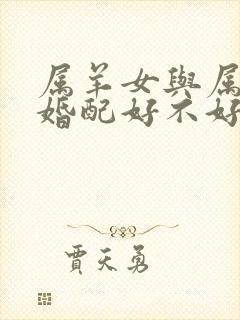 属羊女與属
婚配好不好
賈天勇